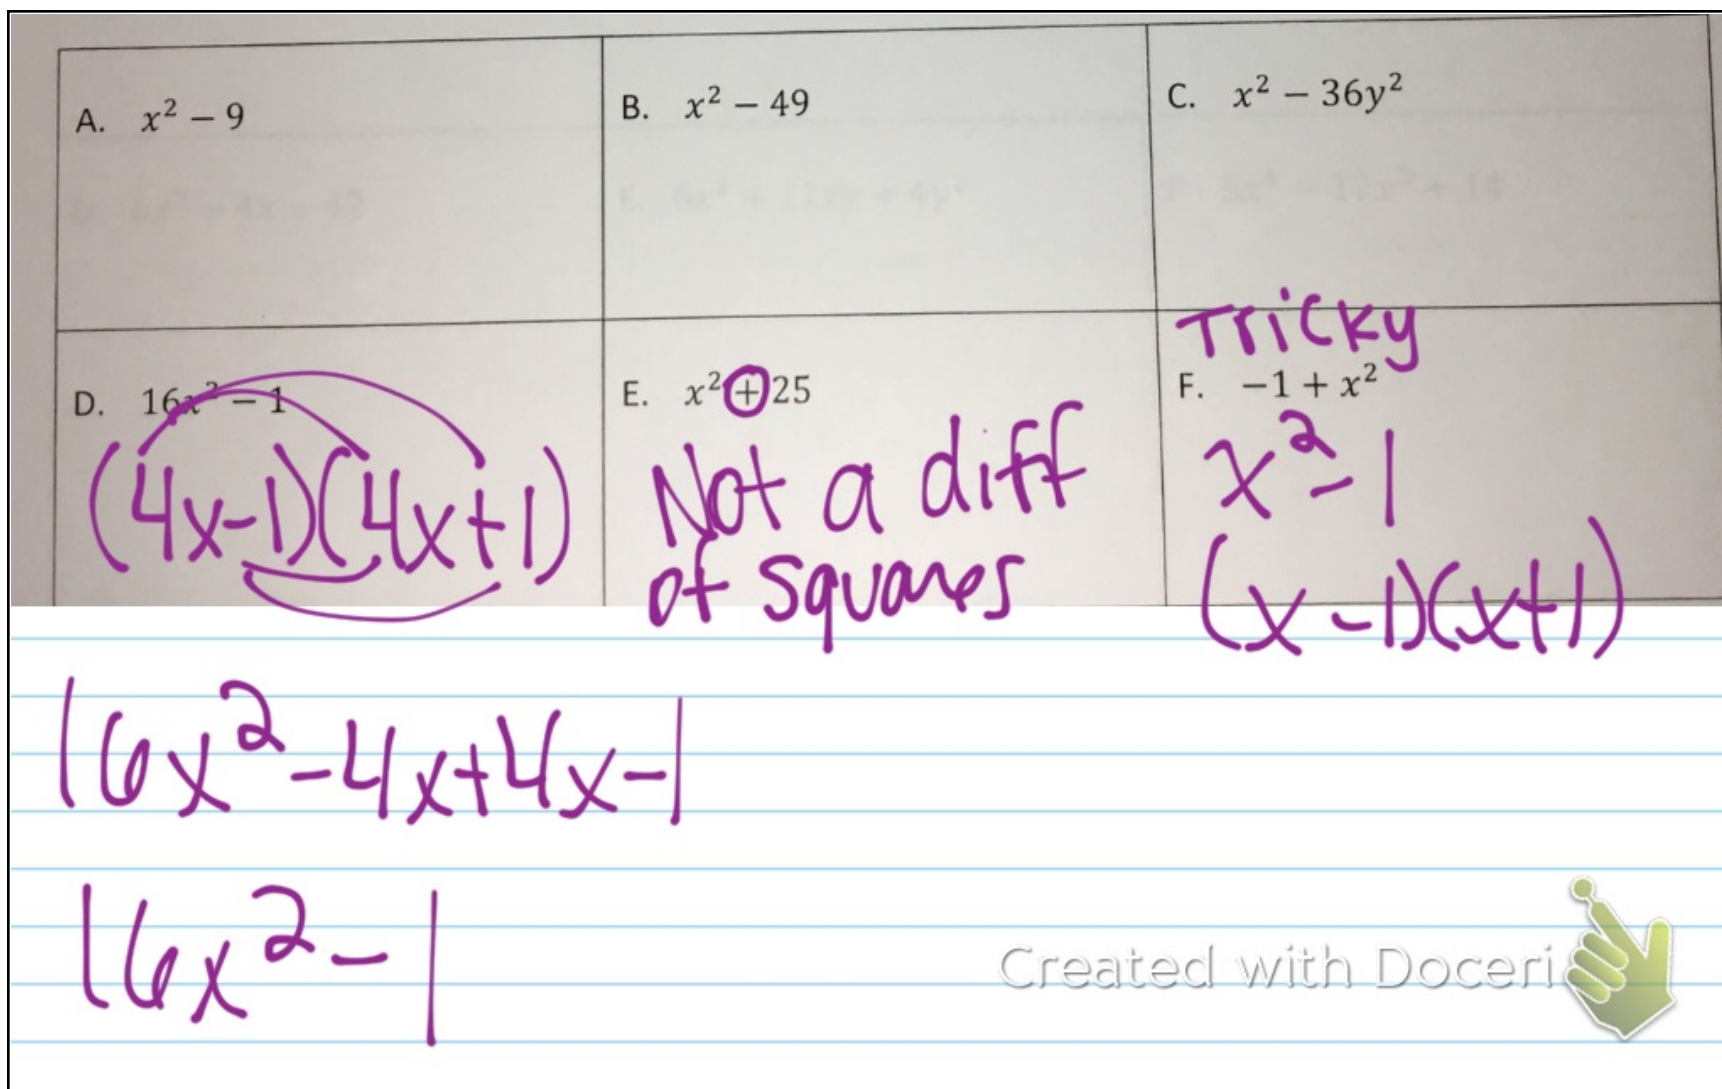 A. x² − 9
B. x² − 49
C. x² − 36y²
D. 16x² − 1
(4x-1)(4x+1)
E. x² + 25
Not a diff
of squares
Tricky
F. −1 + x²
x² - 1
(x-1)(x+1)
16x² - 4x + 4x - 1
16x² - 1
Created with Doceri